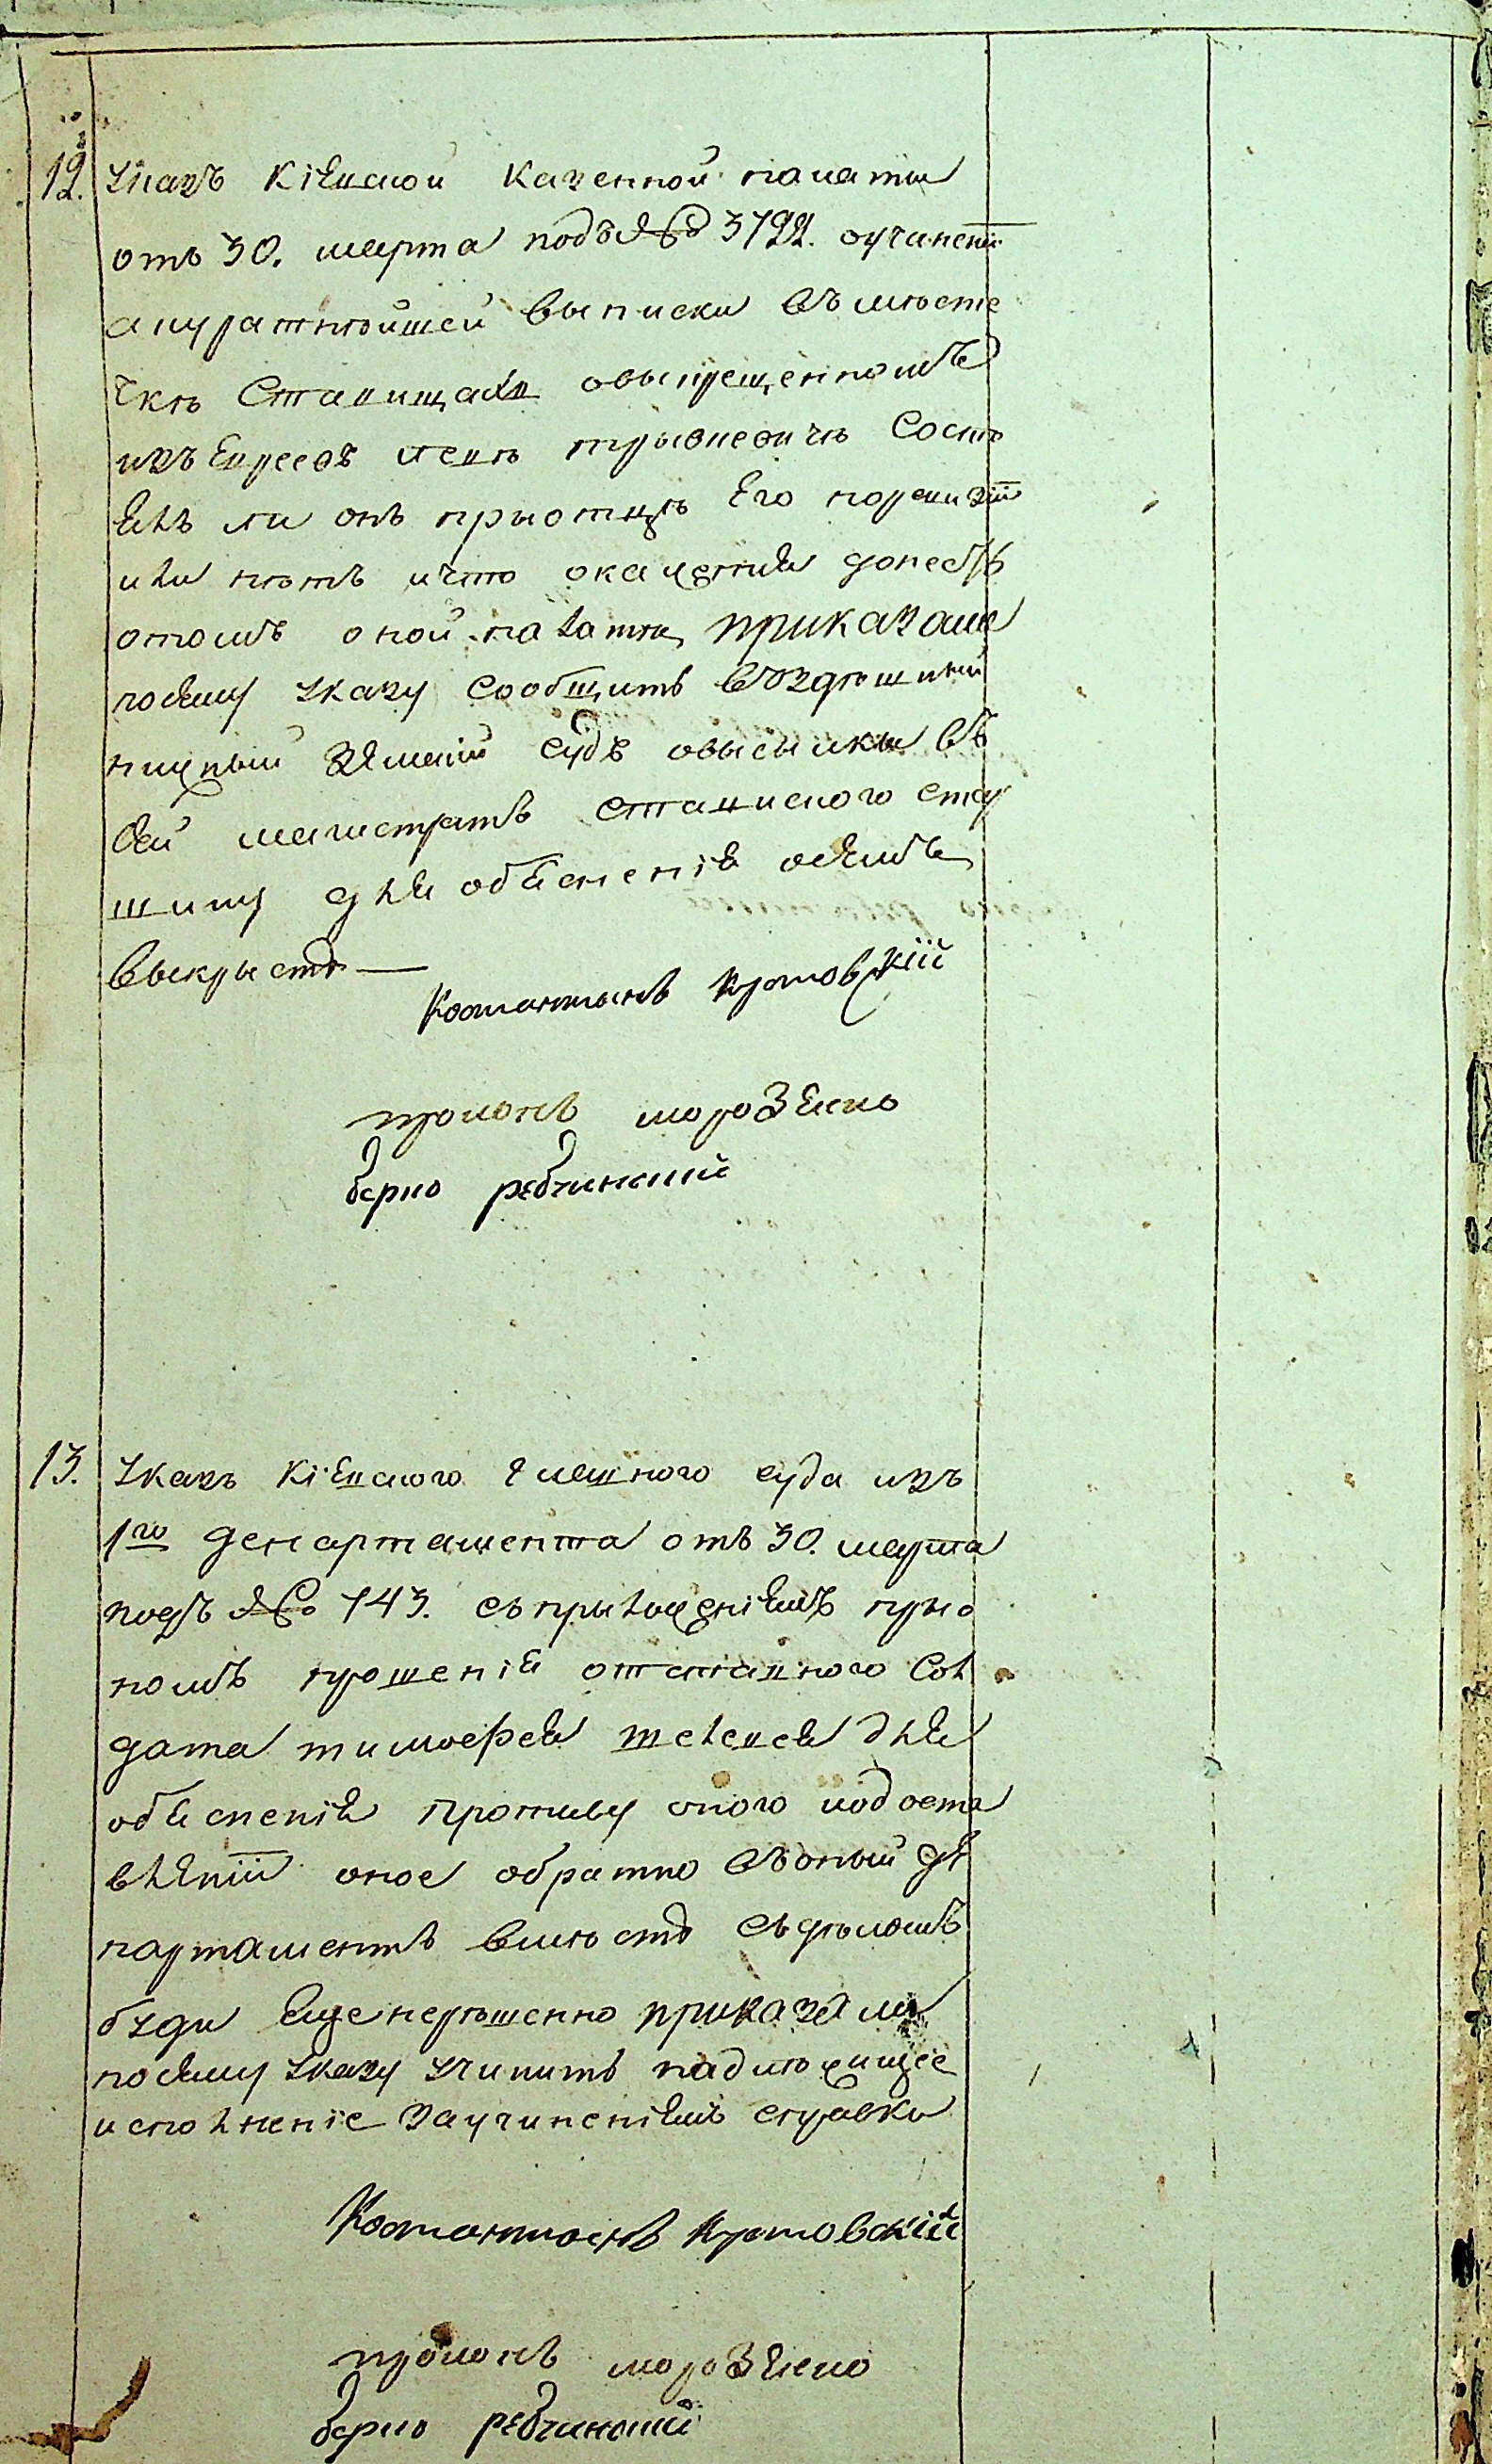 12. указъ кіевской казенной палаты
отъ 30. марта подъ № 3722. оучиненіи
акуратнѣйшей выписки въ мѣсте
чкѣ Ставищахъ овыкрещенномъ
изъ Евреевъ
ялъ ли онъ прыотцѣ его поревизіи
или нѣтъ ичто окажется донесть
отомъ оной палатѣ, приказали
посему указу сообщить въздѣшный
нижный земскій судъ овысылкы въ
сей магистратъ ставиского
для обясненія осемъ
выкрыстѣ —
Костантинъ Кротовскій
морозенко
берко ребчинский
13. указъ кіевского главного суда изъ
1го департамента отъ 30. марта
подъ № 743. съпрыложеніемъ пры о
номъ прошенія отставного сол
дата тимофея шелепея для
обясненія противу оного иодоста
вленіи оное обратно въоный де
партаментъ вмѣстѣ съдѣломъ
буди еще нерѣшенно приказали
посему указу учинить надлѣжищее
исполненіе заучиненіемъ справки
Костантинъ Кротовский
морозенко
берко ребчинский